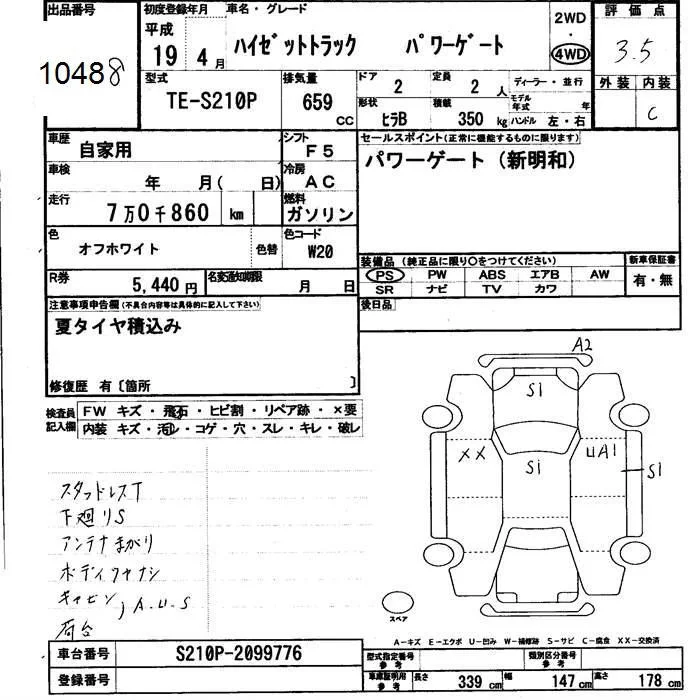 出品番号
10488
初度登録年月
平成
19 4月
車名・グレード
ハイゼットトラック パワーゲート
2WD
4WD
評価点
3.5
外装 内装
C
型式
TE-S210P
排気量
659
CC
ドア
2
定員
2人
ディーラー・並行
形状
ヒラB
積載
350 kg
モデル年式 年
ハンドル 左・右
車歴
自家用
シフト
F5
車検
年 月( 日)
冷房
AC
走行
7万0千860 km
燃料
ガソリン
色
オフホワイト
色替
色コード
W20
R券
5,440円
名変通知期限
月 日
セールスポイント(正常に機能するものに限ります)
パワーゲート(新明和)
装備品 (純正品に限り○をつけてください)
PS PW ABS エアB AW
SR ナビ TV カワ
新車保証書
有・無
後日品
注意事項申告欄(不具合内容等は具体的に記入して下さい)
夏タイヤ積込み
修復歴 有〔箇所 〕
検査員記入欄
FW キズ・飛石・ヒビ割・リペア跡・×要
内装 キズ・汚レ・コゲ・穴・スレ・キレ・破レ
スタッドレスT
下廻りS
アンテナまがり
ボディ
キャビン,A.U.S
荷台
A2
S1
XX
S1
UA1
S1
スペア
A-キズ E-エクボ U-凹み W-補修跡 S-サビ C-腐食 XX-交換済
車台番号
S210P-2099776
登録番号
型式指定番号
参考
類別区分番号
参考
車庫証明用
参考
長さ 339 cm 幅 147 cm 高さ 178 cm